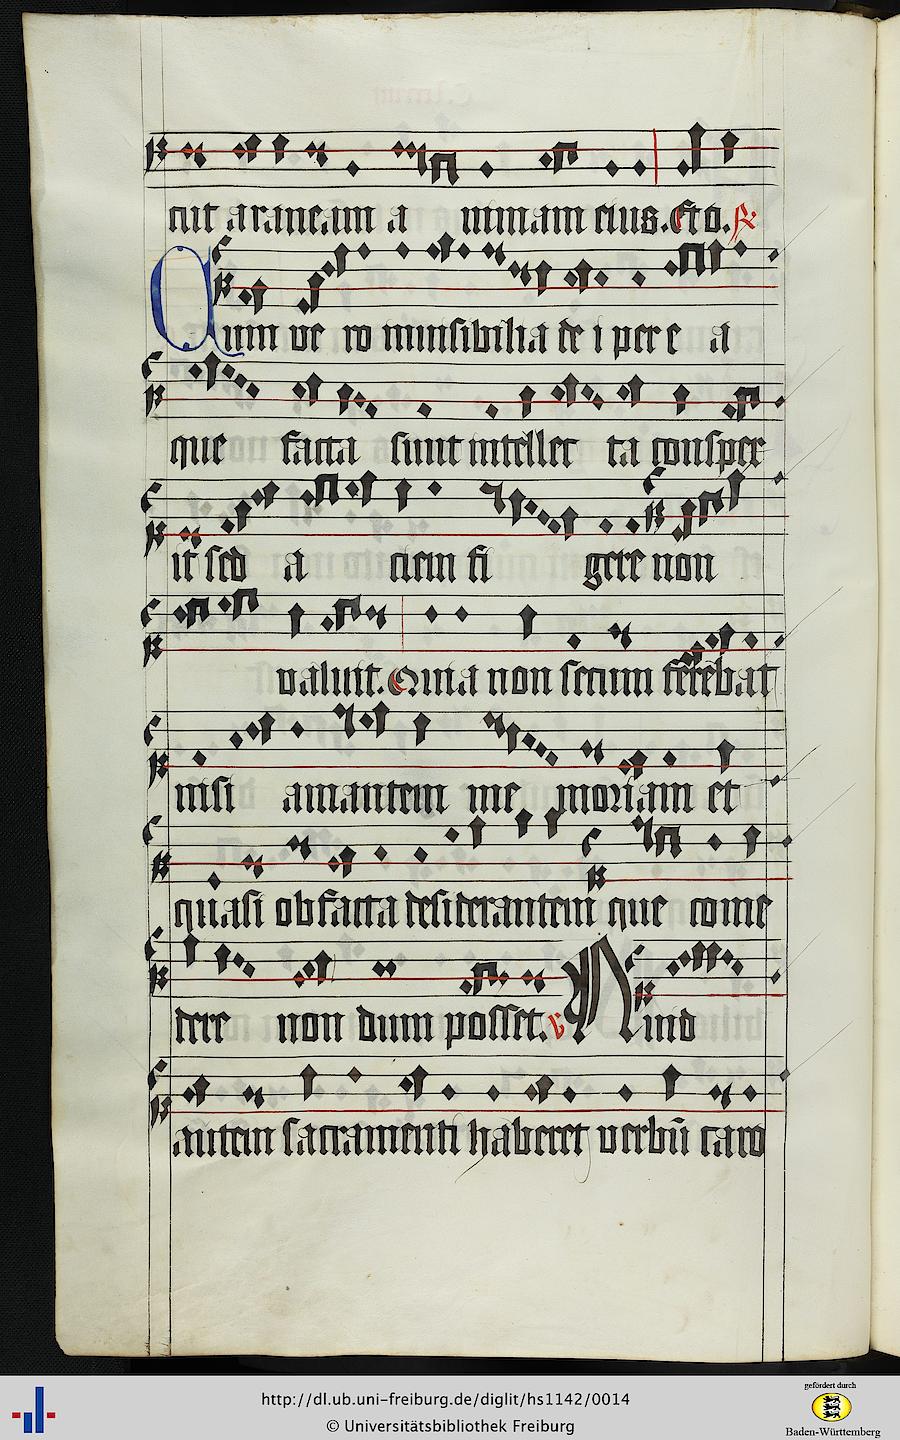 cut araneam a nimam eius. Et o. R
Cum ve ro inuisibilia de i per e a
que facta sunt intellec ta conspex
it sed a ciem fi gere non
valuit. Quia non secum ferebat
nisi amantem me moriam et
quasi obfacta desiderantem que come
dere non dum posset. V Quid
autem sacramenti haberet verbū caro
gefördert durch
http://dl.ub.uni-freiburg.de/diglit/hs1142/0014
© Universitätsbibliothek Freiburg
Baden-Württemberg